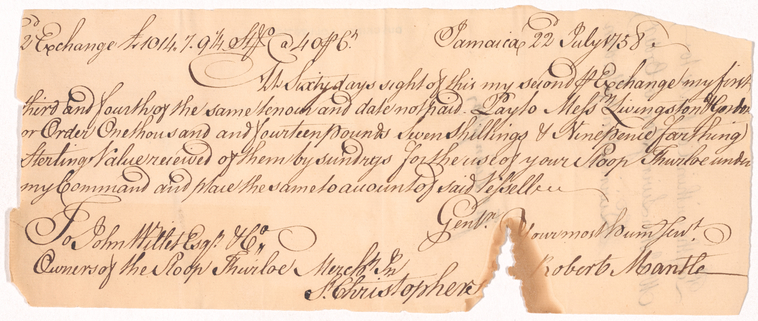 2d Exchange £1014. 7. 9¼ Stg @ 40 ⅌ Ct Jamaica 22d July 1758
At Sixty days sight of this my second of Exchange my first
third and fourth of the same tenour and date not paid Pay to Messrs Livingston &
or Order One thousand and fourteen pounds Seven Shillings & Nine pence farthing
Sterling Value received of them by sundrys for the use of your Sloop Thurloe under
my Command and place the same to account of said Vessell
Gentn
To John Willet Esqr & Co Your most humb Servt
Owners of the Sloop Thurloe Merchts In Robert Mantle
St Christophers